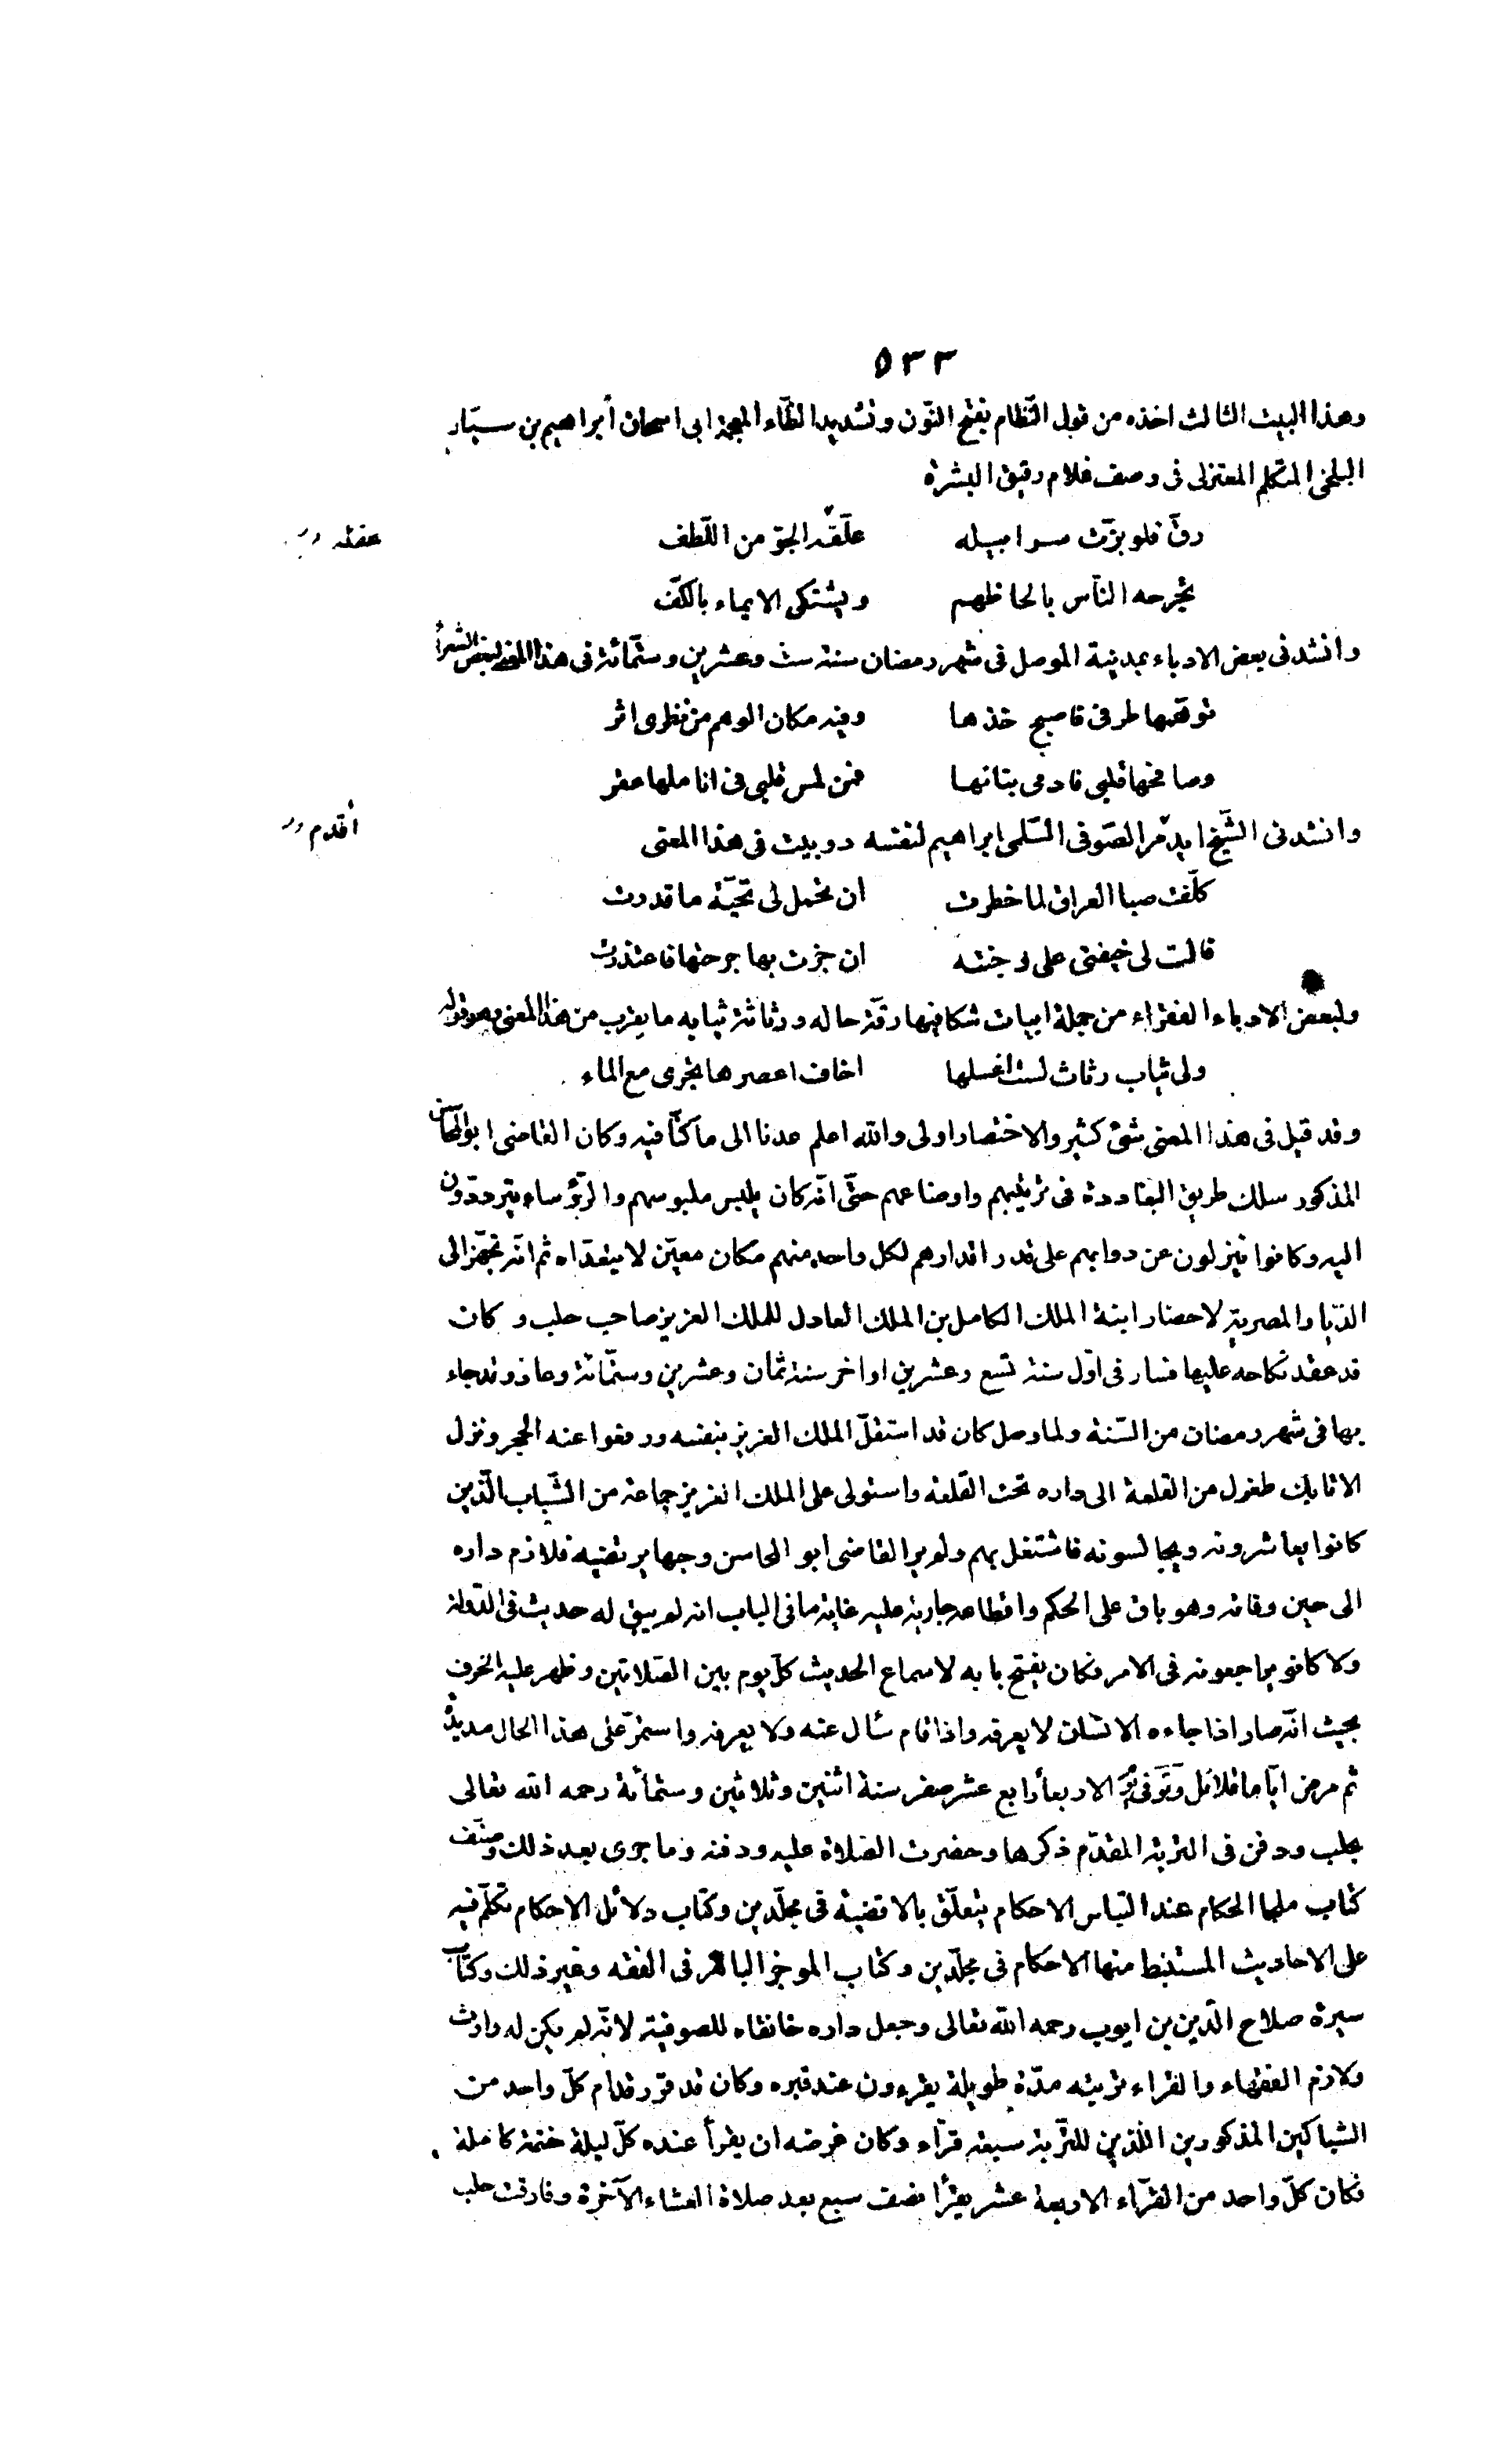 ٥٣٣
وهذا البيت الثالث اخذه من قول النّظام بفتح النّون وتشديد الظّاء المعجمة ابى اسحاق أبراهيم بن سيّار
البلخى المتكلم المعتزلى فى وصف غلام رقيق البشرة
رقّ فلو بزّت سرابيله علّقه الجوّ من اللّطف
يجرحه النّاس بالحاظهم ويشتكى الايماء بالكفّ
وانشدنى بعض الادباء بمدينة الموصل فى شهر رمضان سنة ست وعشرين وستّمائة فى هذا المعنى لبعض الشعرأ
توهّمها طرفى فاصبح خدها وفيه مكان الوهم من نظرى اثر
وصافحها قلبى فادمى بنانها فمن لمس قلبى فى اناملها عقر
وانشدنى الشّيخ ايدمّر الصّوفى السّلمى ابراهيم لنفسه دوبيت فى هذا المعنى
أقدم
كلّفت صبا العراق لما خطرت ان تحمل لى تحيّة ما قدرت
قالت لى خيفتى على وجنته ان جزت بها جرحتها فاعتذرت
ولبعض الادباء الفقراء من جملة ابيات شكا فيها رقّة حاله ورثاثة ثيابه ما يقرب من هذا المعنى وهو قوله
ولى ثياب رثاث لست اغسلها اخاف اعصرها تجرى مع الماء
وقد قيل فى هذا المعنى شئ كثير والاختصار اولى والله اعلم عدنا الى ما كنّا فيه وكان القاضى ابو المحاسن
المذكور سلك طريق البغاددة فى ترتيبهم واوضاعهم حتّى انّه كان يلبس ملبوسهم والرّؤساء يتردّدون
اليه وكانوا ينزلون عن دوابهم على قدر اقدارهم لكل واحد منهم مكان معيّن لا يتعدّاه ثم انّه تجهّز الى
الدّيار المصرية لاحضار ابنة الملك الكامل بن الملك العادل للملك العزيز صاحب حلب وكان
قد عقد نكاحه عليها فسار فى اوّل سنة تسع وعشرين اواخر سنة ثمان وعشرين وستّمائة وعاد وقد جاء
بها فى شهر رمضان من السّنة ولما وصل كان قد استقلّ الملك العزيز بنفسه ورفعوا عنه الحجر ونزل
الاتابك طغرل من القلعة الى داره تحت القلعة واستولى على الملك العزيز جماعة من الشّباب الّذين
كانوا يعاشرونه ويجالسونه فاشتغل بهم ولم ير القاضى ابو المحاسن وجها يرتضيه فلازم داره
الى حين وفاته وهو باق على الحكم واقطاعه جارية عليه غاية ما فى الباب انه لم يبق له حديث فى الدّولة
ولا كانوا يراجعونه فى الامر فكان يفتح بابه لاسماع الحديث كلّ يوم بين الصّلاتين وظهر عليه الخرف
بحيث انّه صار اذا جاءه الانسان لا يعرفه واذا قام سأل عنه ولا يعرفه واستمرّ على هذا الحال مديدة
ثم مرض ايّاما قلائل وتوفّى يوم الاربعأ رابع عشر صفر سنة اثنين وثلاثين وستمأئة رحمه الله تعالى
بحلب ودفن فى التربة المقدّم ذكرها وحضرت الصّلاة عليه ودفنه وما جرى بعد ذلك وصنّف
كتاب ملجا الحكام عند التباس الاحكام يتعلّق بالاقضية فى مجلّدين وكتاب دلائل الاحكام تكلّم فيه
على الاحاديث المستنبط منها الاحكام فى مجلّدين وكتاب الموجز الباهر فى الفقه وغير ذلك وكتاب
سيرة صلاح الدّين بن ايوب رحمه الله تعالى وجعل داره خانقاه للصوفية لانّه لم يكن له وارث
ولازم الفقهاء والقراء تربته مدّة طويلة يقرءون عند قبره وكان قد قرّر قدام كلّ واحد من
الشباكين المذكورين اللذين للتّربة سبعة قرّاء وكان غرضه ان يقرأ عنده كلّ ليلة ختمة كاملة
فكان كلّ واحد من القرّاء الاربعة عشر يقرأ نصف سبع بعد صلاة العشاء الآخرة وفارقت حلب